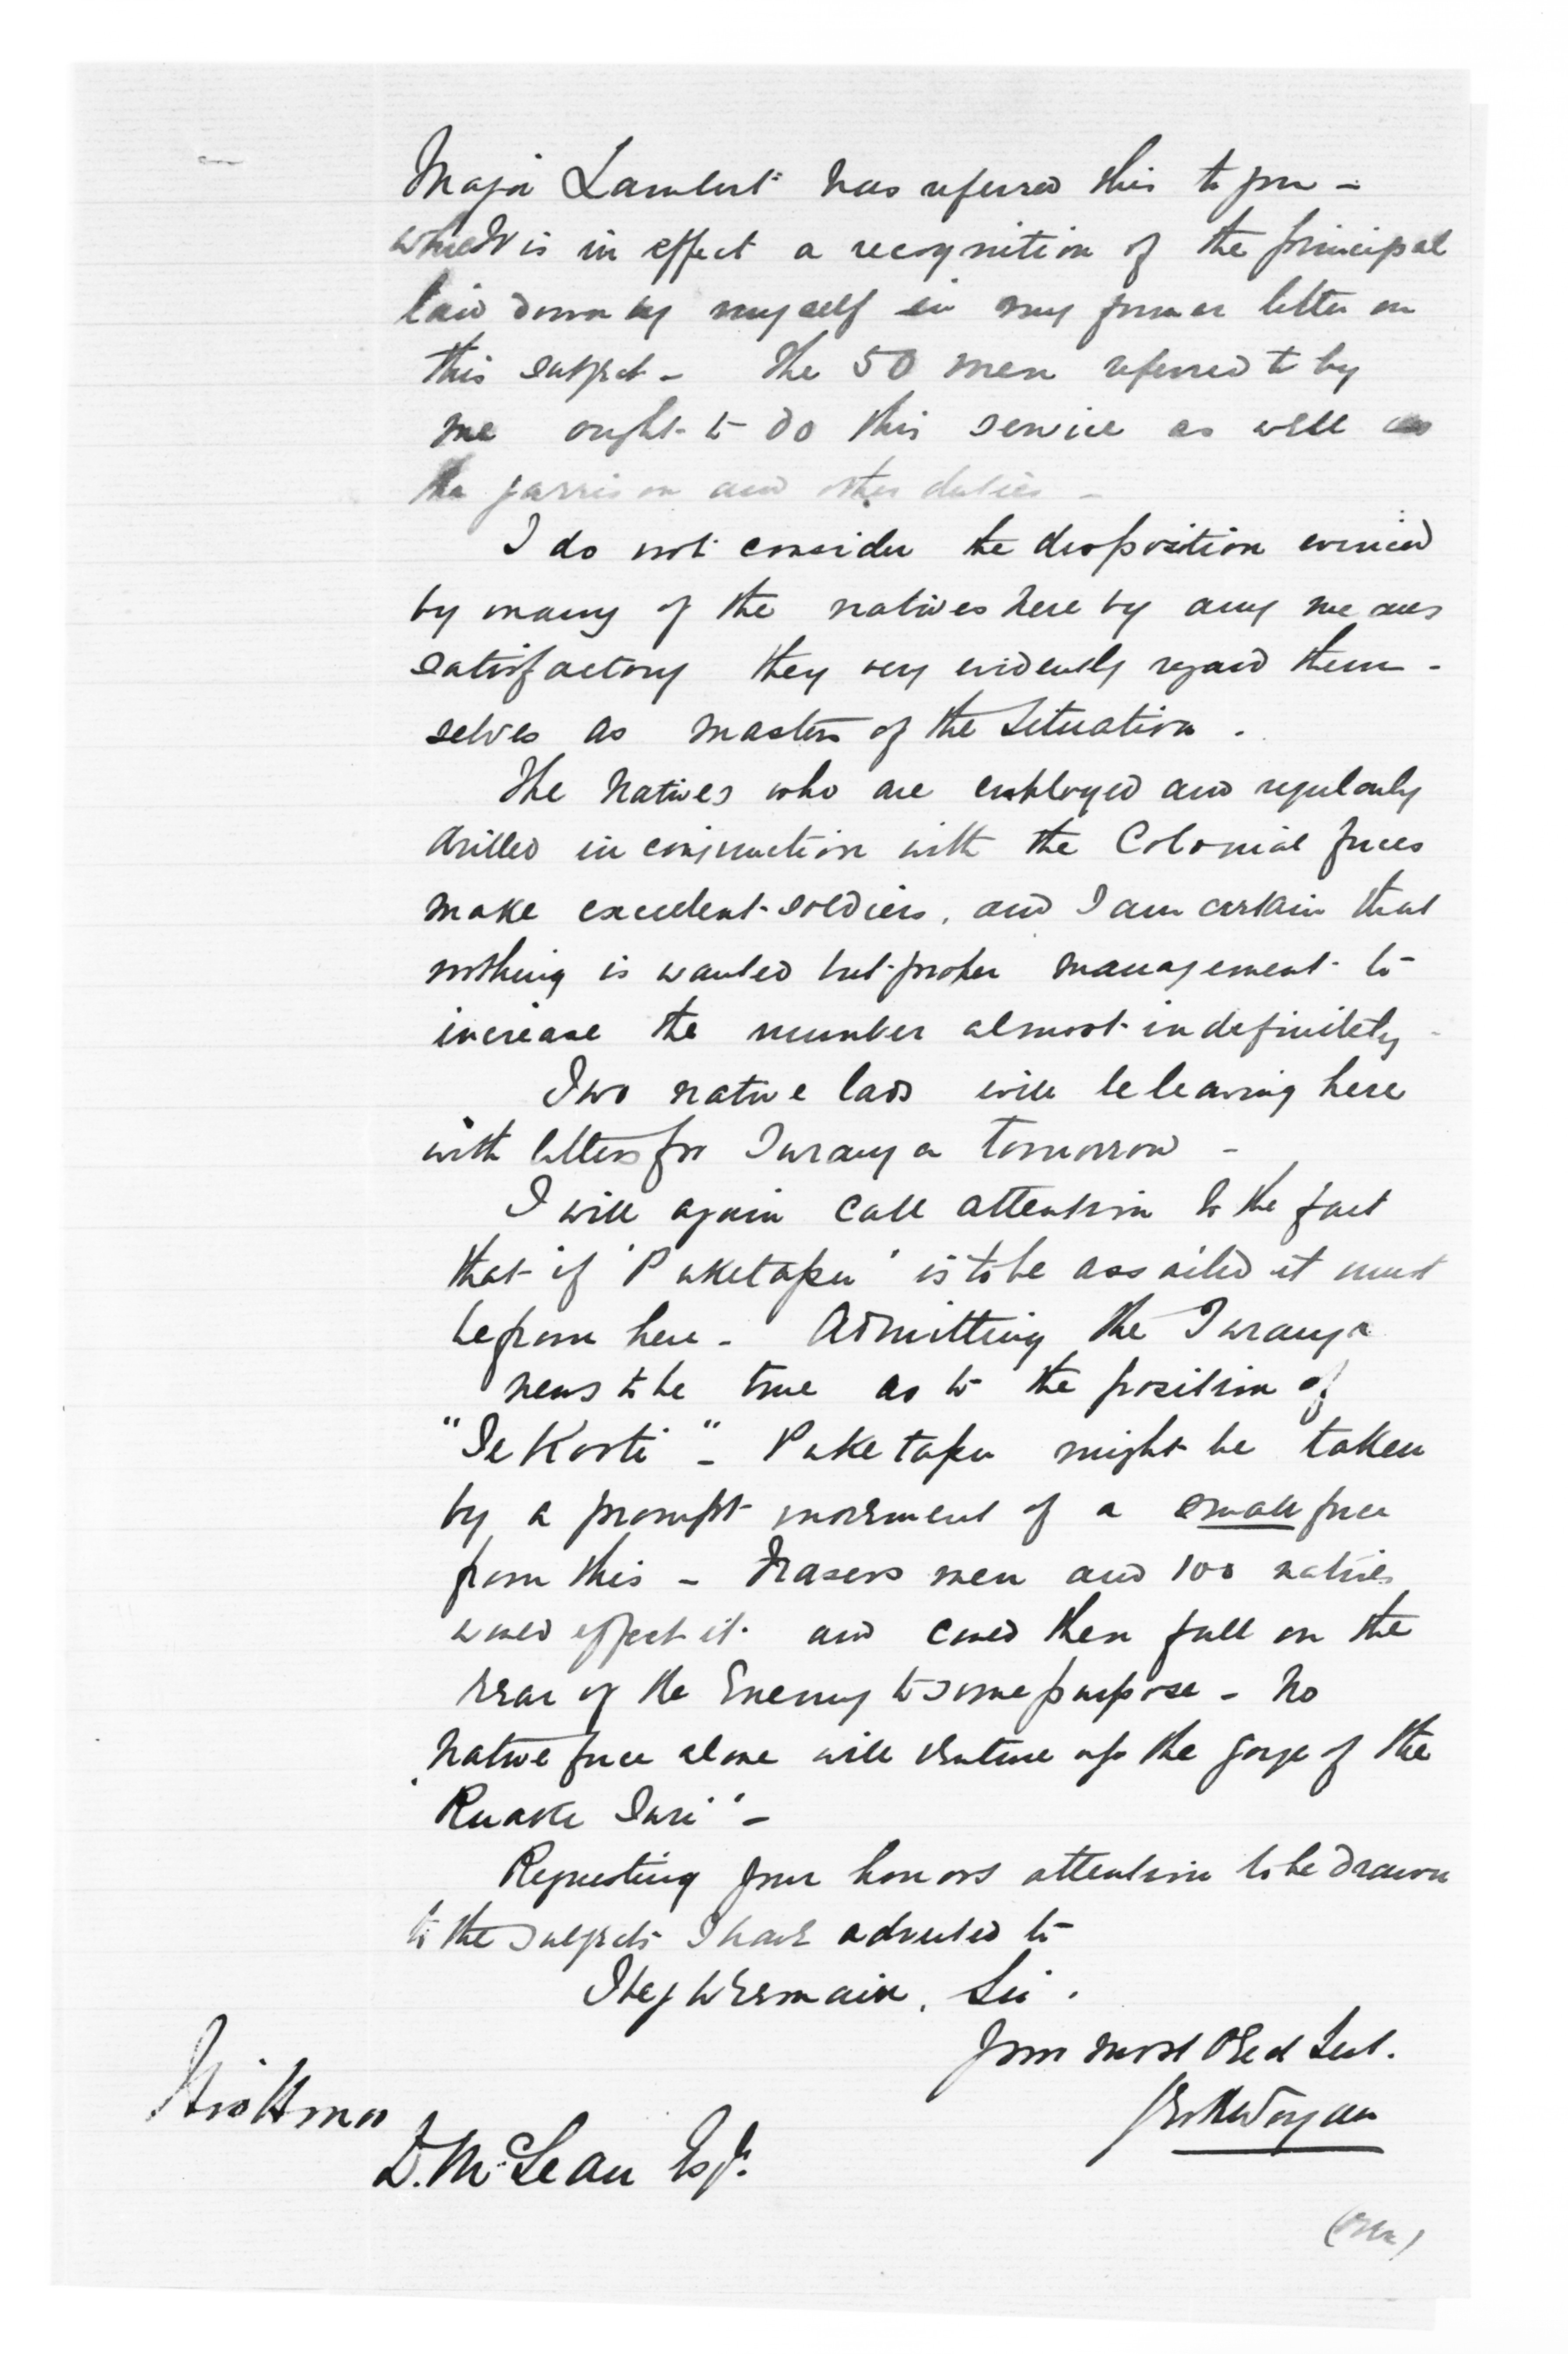 Major Lambert has referred this to you -
which is in effect a recognition of the principal
laid down by myself in my former letter on
this subject - The 50 men referred to by
me ought to do this service as well as
the garrison and other duties -
I do not consider the disposition evinced
by many of the natives here by any means
satisfactory they very evidently regard them -
selves as masters of the Situation .
The Natives who are employed and regularly
drilled in conjunction with the Colonial forces
make excellent soldiers, and I am certain that
nothing is wanted but proper management to
increase the number almost indefinitely -
Two native lads will be leaving here
with letters for Turanga tomorrow -
I will again call attention to the fact
that if 'Puketapu' is to be assailed it must
be from here - Admitting the Turanga
news to be true as to the position of
"Te Kooti" - Puketapu might be taken
by a prompt movement of a small force
from this - Frasers men and 100 natives
would effect it and could then fall on the
rear of the Enemy to some purpose - No
Native force alone will venture up the gorge of the
'Ruake Turi' -
Requesting your honors attention to be drawn
to the subjects I have adverted to
I beg to remain, Sir .
Your most Obed Servt.
His Honor
D. McLean Esqr.
(Over)